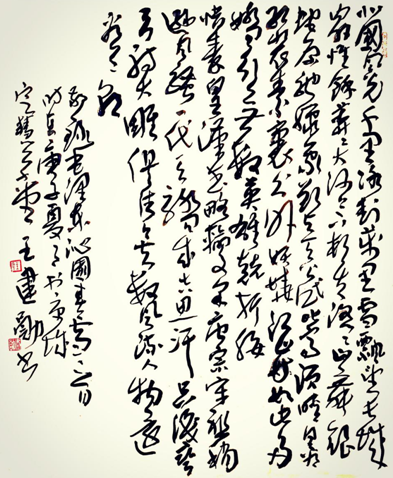 北国风光千里冰封万里雪飘望长城
内外惟余莽莽大河上下顿失滔滔山舞银
蛇原驰蜡象欲与天公试比高须晴日看
红装素裹分外妖娆江山如此多
娇引无数英雄竞折腰
惜秦皇汉武略输文采唐宗宋祖稍
逊风骚一代天骄成吉思汗只识弯
弓射大雕俱往矣数风流人物还
看今朝
毛泽东沁园春雪一首
庚子夏日书于
王建勋书